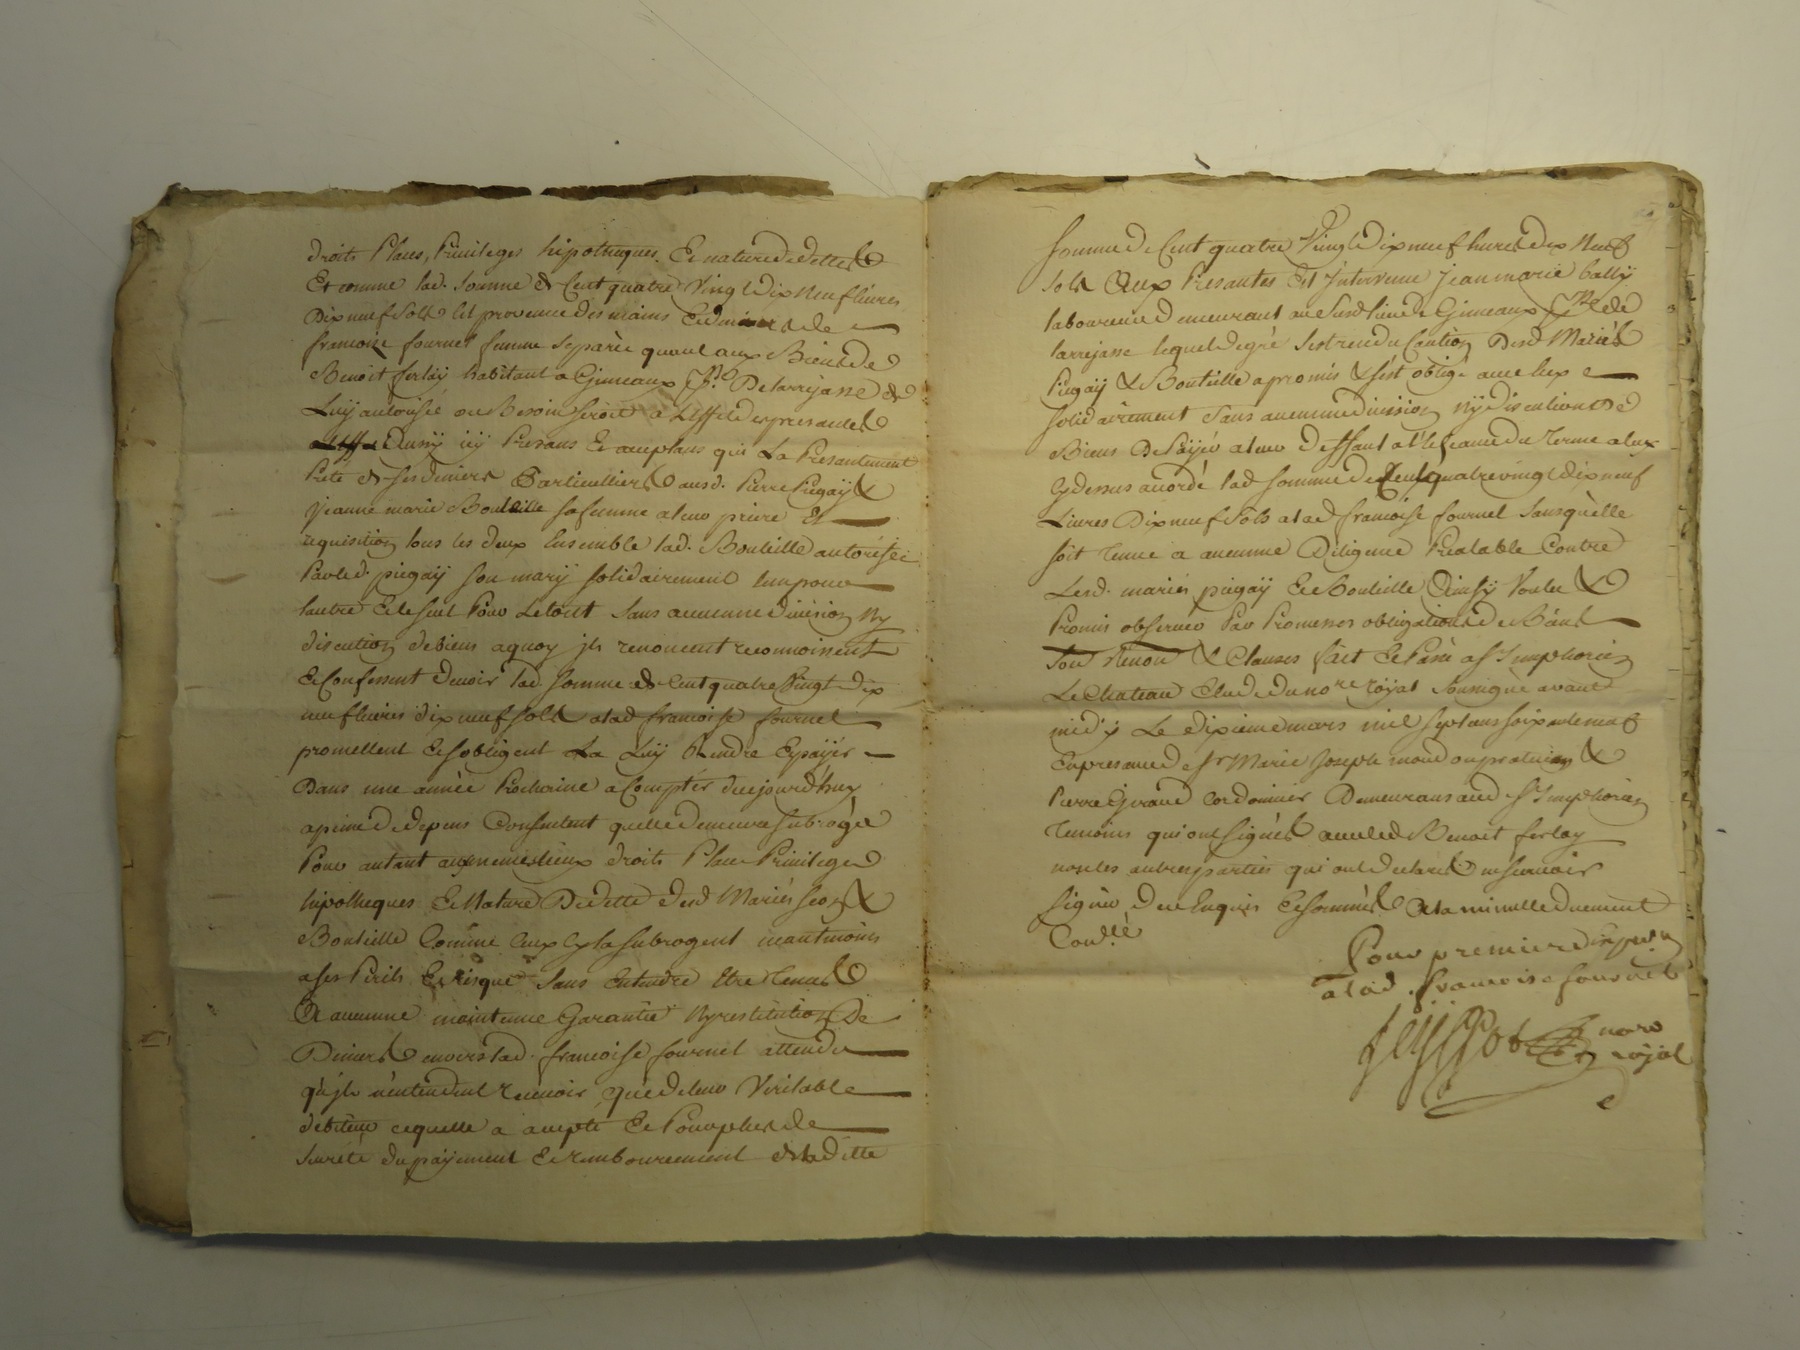 droits Places, Privileges hipotheques Et nature de dettes
Et comme lad. Somme de Cent quatre Vingt Dix Neuf livres
Dix neuf Sols Est provenue des mains Et deniers de
francoise fournel femme Sepparée quant aux Biens de
Benoit ferlay habitant a Gimeaux Psse De larrajasse de
Luy autorisée ou Besoin seroit a L'effet des presantes
aussy icy Presans Et acceptans qui La Presantement
Prêté de ses deniers Particulliers ausd. Pierre Piegaÿ &
jeanne marie Bouteille sa femme a leur priere Et
requisition tous les deux Ensemble lad. Bouteille autorisée
Par led. piegaÿ son marÿ solidairement l'un pour
l'autre Et le seul Pour Le tout Sans aucunne division Ny
discution de biens a quoy jls renoncent reconnoissent
Et Confessent devoir lad. somme de Cent quatre Vingt dix
neuf livres dix neuf sols a lad francoise fournel
promettent Et s'obligent La Luÿ Rendre Et payér
Dans une année Prochaine a Comptér de cejourd'huy
a peine de depens Consentent quelle demeure subrogéé
Pour autant aux memes lieux droits Place Privileges
hipotheques Et Nature De dette desd Mariés &
Bouteille Comme Ceux Cy la subrogent neantmoins
a ses Perils Et risque Sans Entendre Etre tenus
A aucunne maintenue Garantie Ny restitution De
Deniers envers lad. francoise fournel attendu
qu'jls n'entendent recevoir que de leur Veritable
débiteur ce quelle a accepté Et Pour plus de
sureté du payement Et remboursement de laditte
somme de Cent quatre Vingt dix neuf livres dix Neuf
sols Aux Presantes Est Intervenu Jean marie bally
laboureur demeurant au susd lieu de Gimeaux Psse de
larrajasse lequel de gré s'est rendu Caution Desd Mariés
Piegaÿ & Bouteille a promis & s'est obligé avec Eux
solidairement Sans aucunne division nÿ discution de
Biens De Payér a leur deffaut a l'Echeance du Terme a Eux
Cy dessus accordé lad somme de Cent quatre vingt dix neuf
Livres Dix neuf Sols a lad francoise fournel Sans qu'elle
soit tenue a aucunne Diligence Prealable Contre
Lesd. mariés piegaÿ Et Bouteille Ainsy Voulu &
Promis observer Par Promesses obligations de Biens
Soum Renon & Clauses fait Et Passé a St Simphorien
Le Chateau Etude du nore royal soussigné avant
midy Le dixieme mars mil sept cens soixante neuf
En presance de Sr Marie Joseph praticien &
Pierre Giraud Cordonnier Demeurans aud St Simphorien
temoins qui ont signés avec led Benoit ferlay
non les autres parties qui ont declaré ne scavoir
signér de ce Enquis Et sommés A la minutte duement
Conllé
Pour premiere Exped.on
a lad. francoise fournel
nore
royal